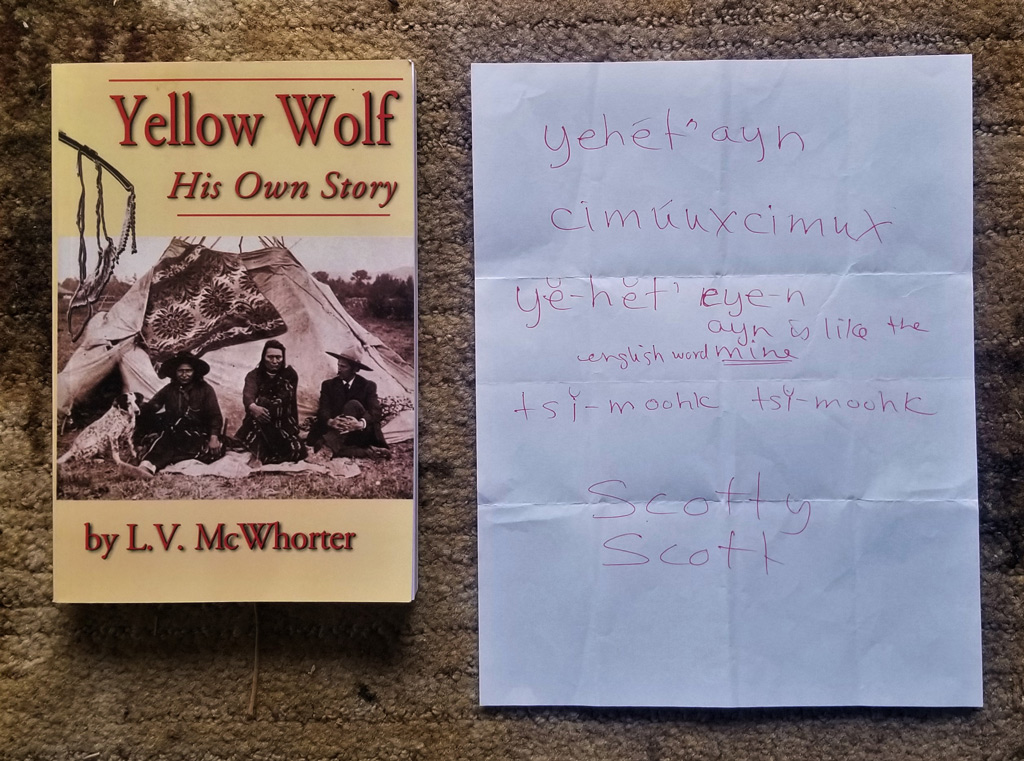 Yellow Wolf
His Own Story
by L.V. McWhorter
yehét' ayn
cimúuxcimux
yĕ-hĕt' eye-n
ayn is like the
english word mine
tsĭ-moohk tsĭ-moohk
Scotty
Scott